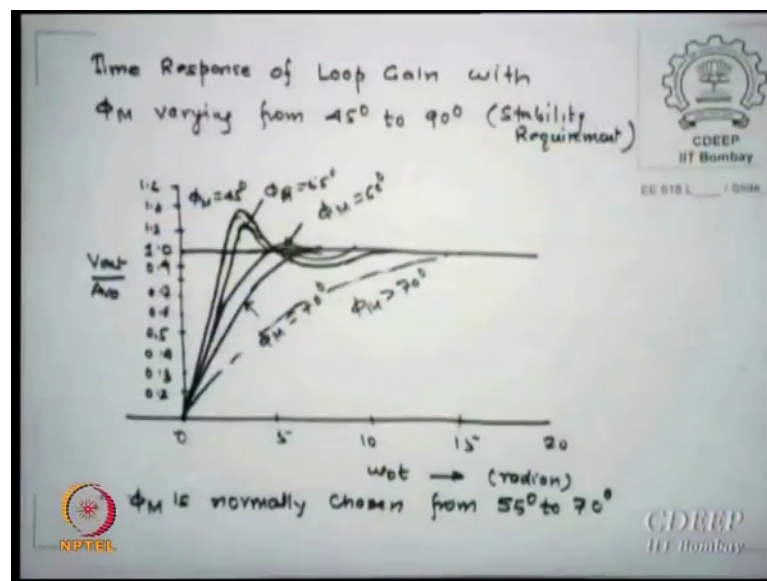 Time Response of Loop Gain with
ΦM varying from 45° to 90° (Stability
Requirement)
CDEEP
IIT Bombay
EE 618 L / Slide
ΦM = 45°
ΦM = 55°
ΦM = 60°
1.0
0.9
0.5
0.3
0.2
Vout
Avo
ΦM = 70°
ΦM > 70°
0 5 10 15 20
ωot → (radian)
ΦM is normally chosen from 55° to 70°
NPTEL
CDEEP
IIT Bombay